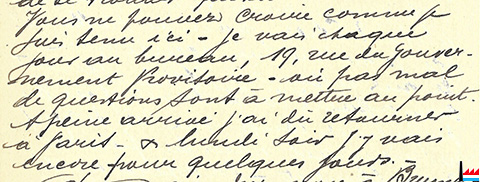 Vous ne pouvez croire comme je
suis tenu ici - je vais chaque
jour au bureau, 19, rue du Gouver-
nement Provisoire - où pas mal
de questions sont à mettre au point.
A peine arrivé j'ai dû retourner
à Paris - & lundi soir j'y vais
encore pour quelques jours. -